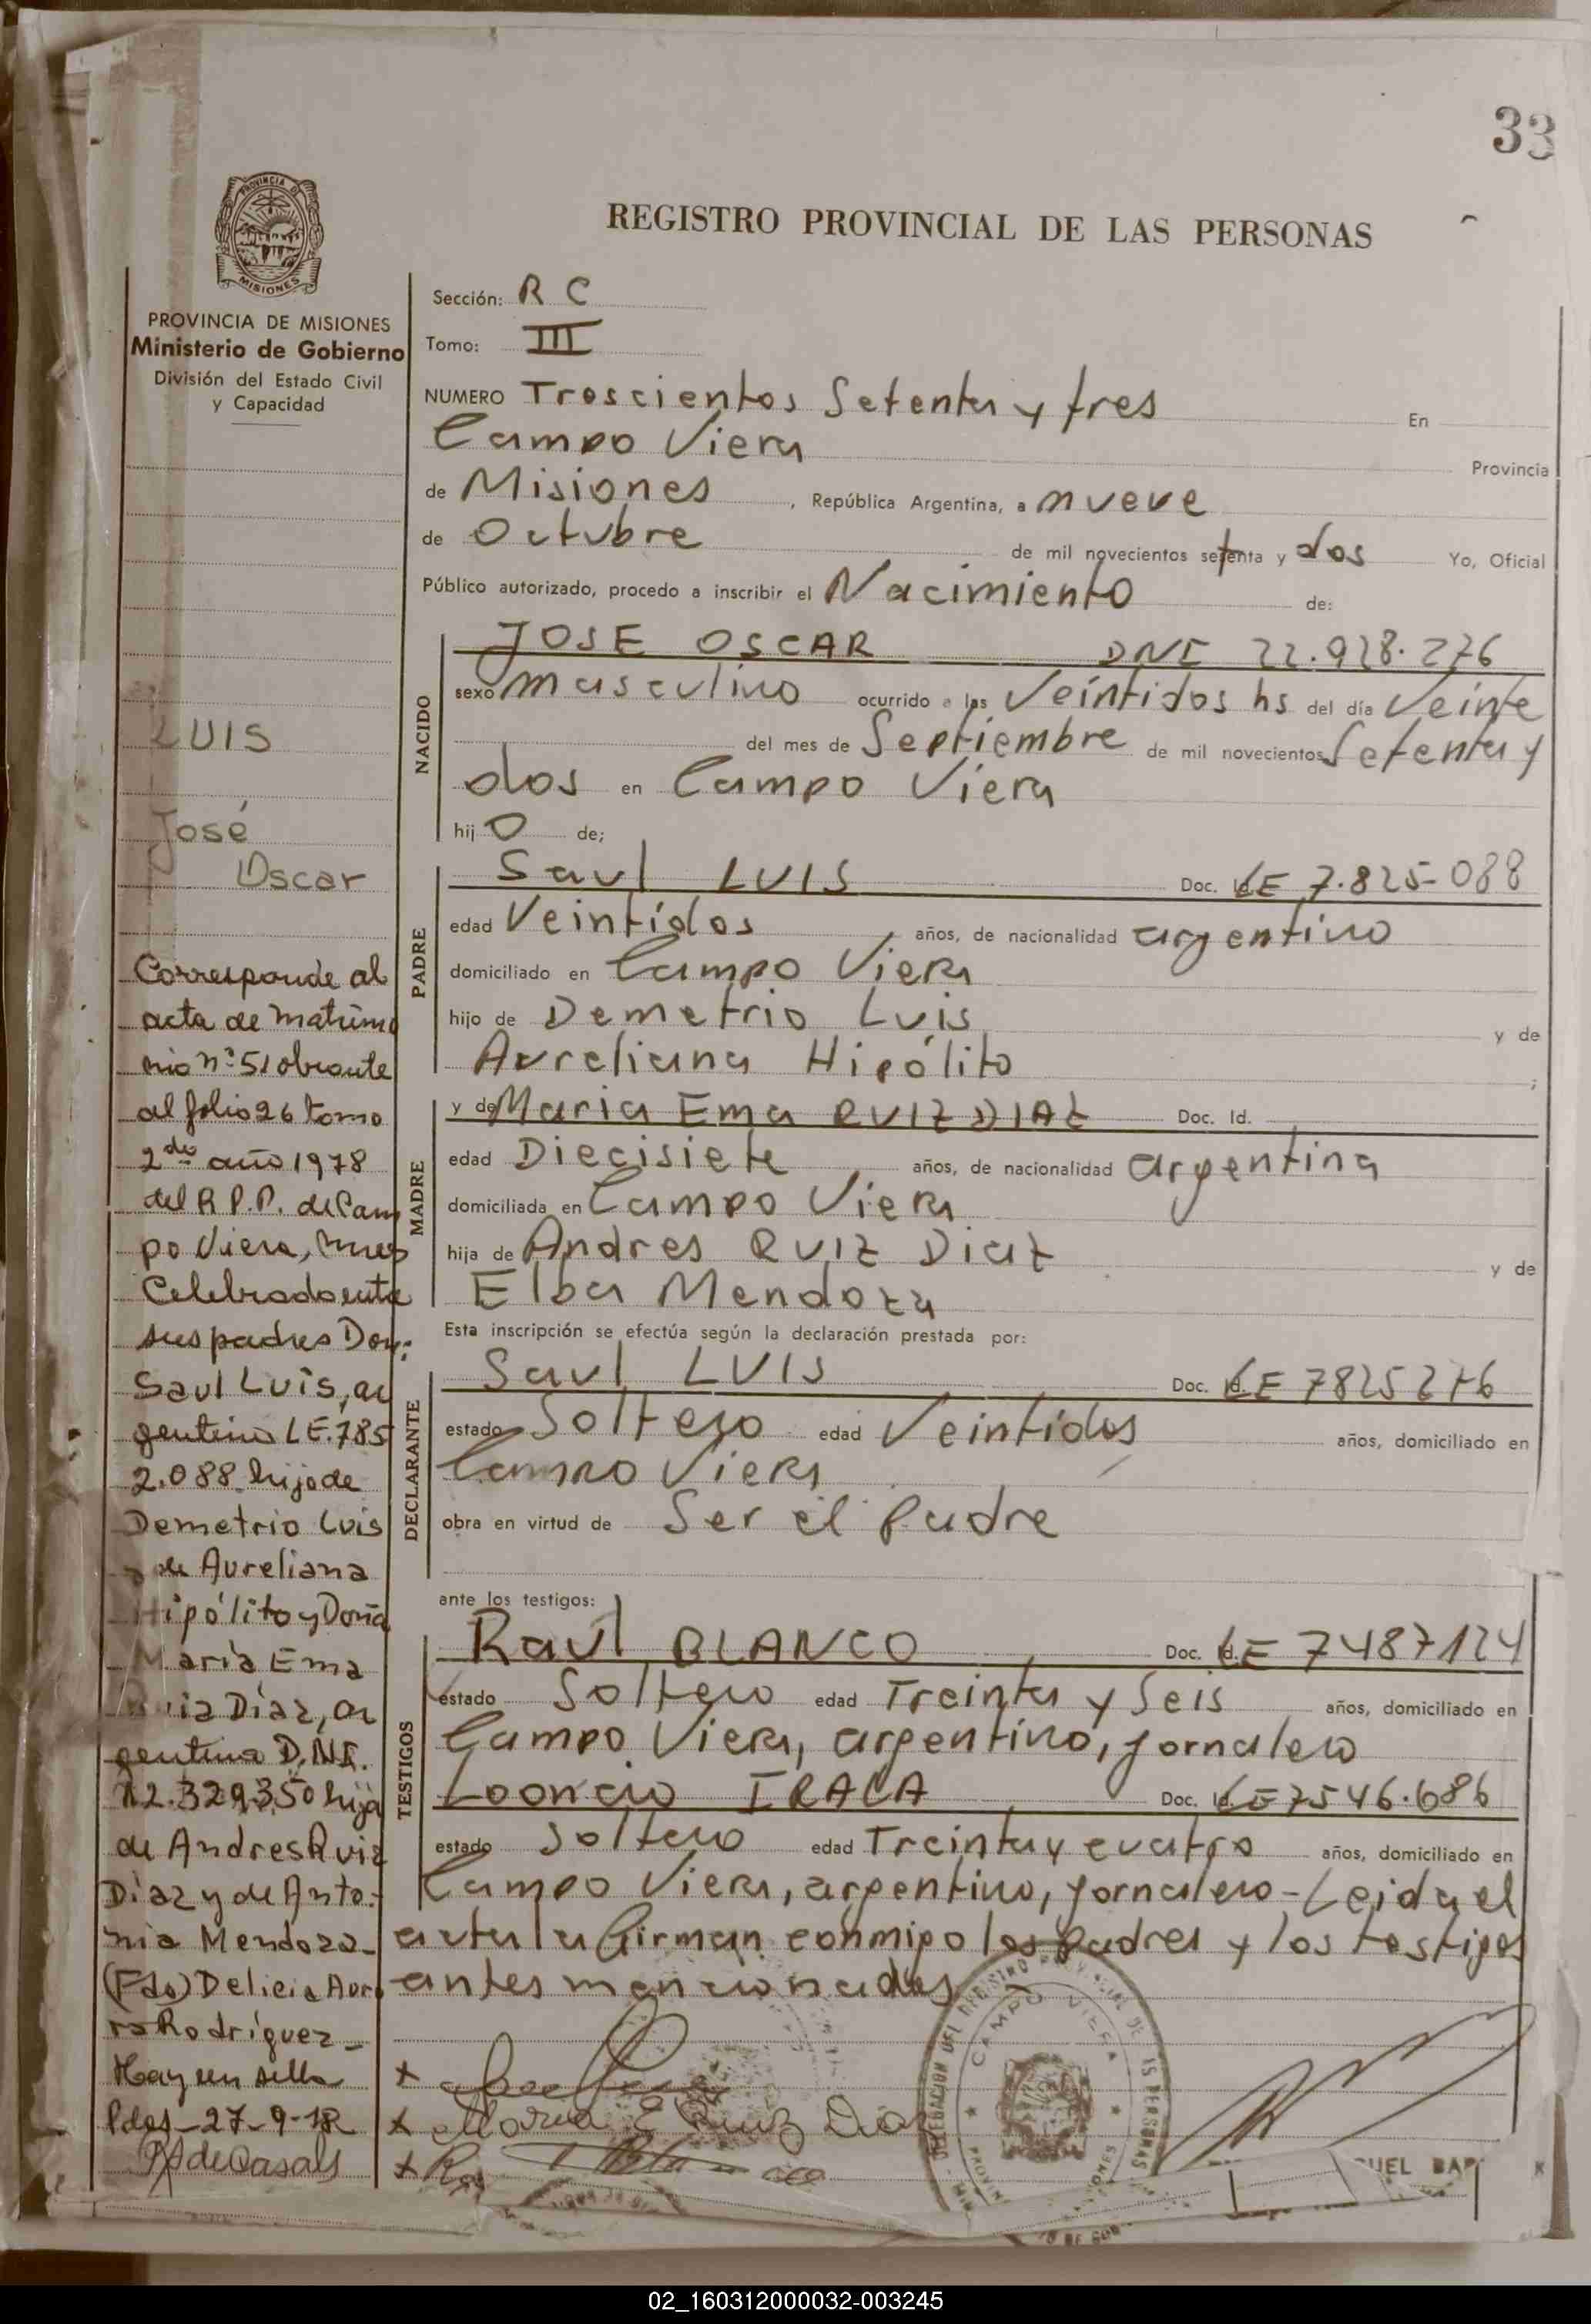 33
REGISTRO PROVINCIAL DE LAS PERSONAS
PROVINCIA DE MISIONES
PROVINCIA DE MISIONES
Ministerio de Gobierno
División del Estado Civil
y Capacidad
LUIS
José
Oscar
Corresponde al
acta de matrimo
nio nº 51 obrante
al folio 26 tomo
2do año 1978
del R.P.P. de Cam
po Viera, Mnes
Celebrado entre
sus padres Don:
Saul Luis, ar
gentino L.E. 785
2.088 hijo de
Demetrio Luis
y de Aureliana
Hipólito y Doña
Maria Ema
Ruiz Díaz, ar
gentina D.N.I.
12.329.350 hija
de Andres Ruiz
Díaz y de Anto-
nia Mendoza-
(Fdo) Delicia Auro
ra Rodríguez-
Hay un sello
Pdas-27-9-
de Casals
Sección: R C
Tomo: III
NUMERO Trescientos Setenta y tres En
Campo Viera Provincia
de Misiones, República Argentina, a nueve
de Octubre de mil novecientos setenta y dos Yo, Oficial
Público autorizado, procedo a inscribir el Nacimiento de:
NACIDO
JOSE OSCAR DNI 22.928.276
sexo masculino ocurrido a las Veintidos hs del día Veinte
del mes de Septiembre de mil novecientos Setenta y
dos en Campo Viera
hij o de;
PADRE
Saul LUIS Doc. Id. LE 7.825-088
edad Veintidos años, de nacionalidad argentino
domiciliado en Campo Viera
hijo de Demetrio Luis y de
Aureliana Hipólito ;
MADRE
y de Maria Ema RUIZ DIAZ Doc. Id.
edad Diecisiete años, de nacionalidad argentina
domiciliada en Campo Viera
hija de Andres RUIZ Diaz y de
Elba Mendoza
Esta inscripción se efectúa según la declaración prestada por:
DECLARANTE
Saul LUIS Doc. Id. LE 7825276
estado Soltero edad Veintidos años, domiciliado en
Campo Viera
obra en virtud de Ser el Padre
ante los testigos:
TESTIGOS
Raúl BLANCO Doc. Id. LE 7487124
estado Soltero edad Treinta y Seis años, domiciliado en
Campo Viera, argentino, jornalero
Leoncio IRALA Doc. Id. LE 7546.686
estado Soltero edad Treinta y cuatro años, domiciliado en
Campo Viera, argentino, jornalero - Leida el
acta la firman conmigo los Padres y los testigos
antes mencionados
Maria E Ruiz Diaz
DELEGACION DEL REGISTRO
CAMPO VIERA
02_160312000032-003245